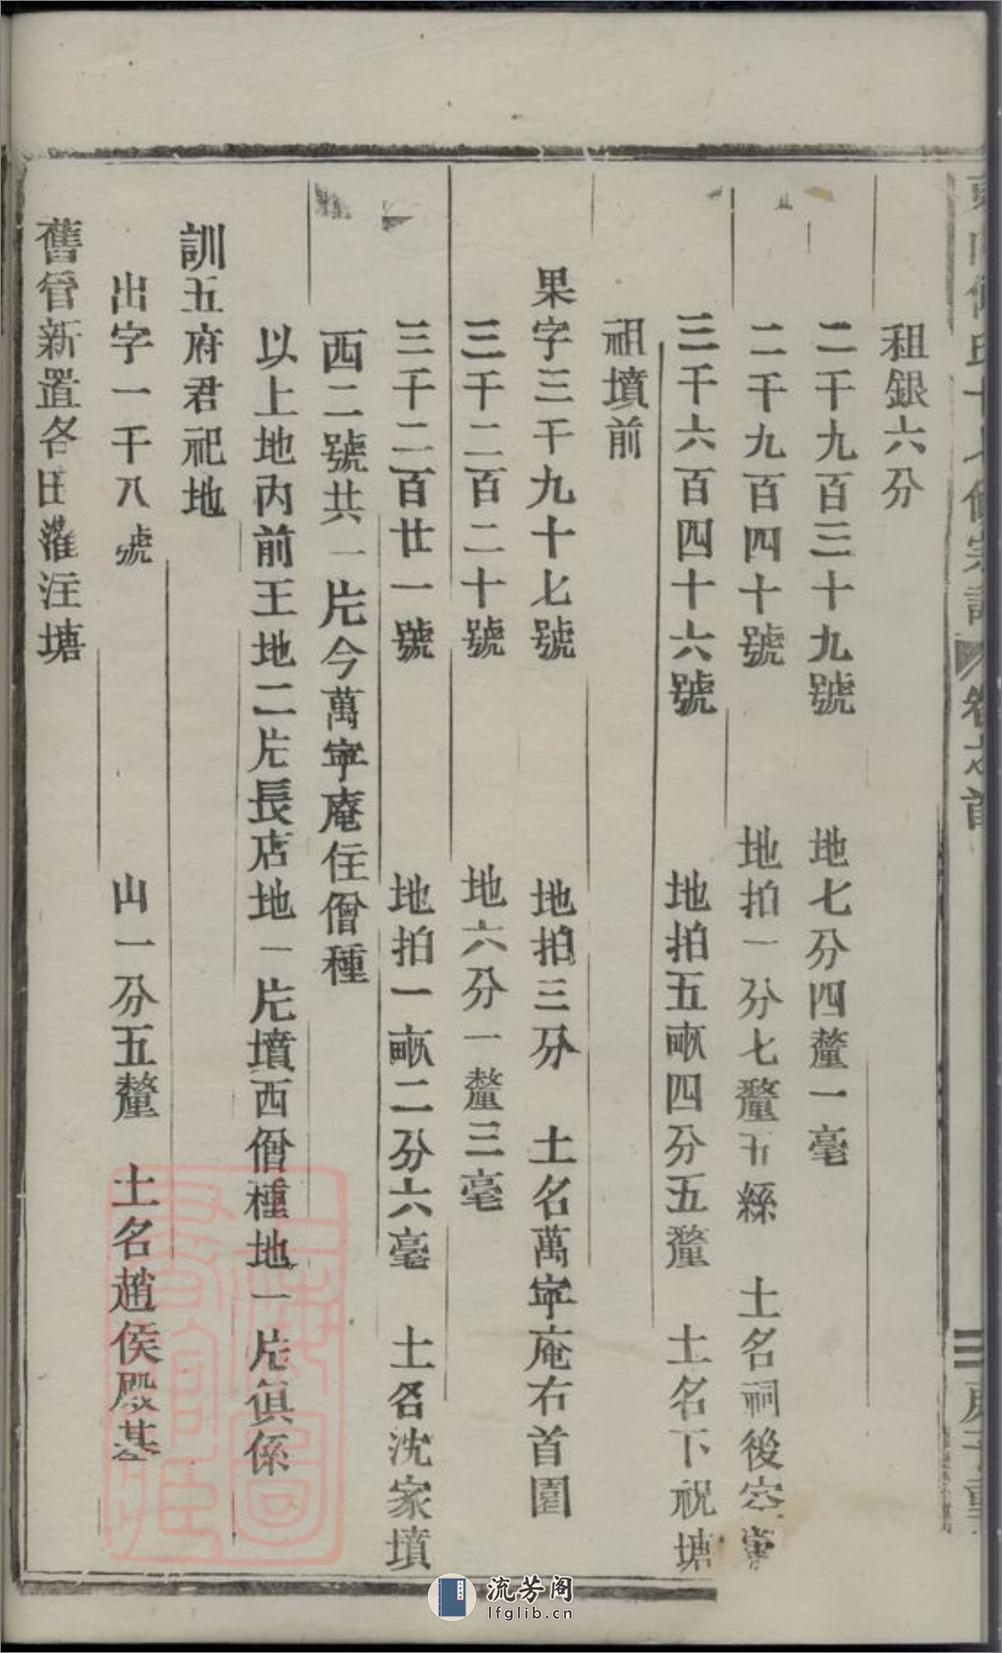 祖銀六分
二千九百三十九號 地七分四釐一毫
二千九百四十號 地拍一分七釐五絲 土名祠後
三千六百四十六號 地拍五畝四分五釐 土名下祝塘
祖墳前
果字三千九十七號 地拍三分 土名萬寧庵右首園
三千二百二十號 地六分一釐三毫
三千二百廿一號 地拍一畝二分六毫 土名沈家墳
西二號共一片今萬寧庵住僧種
以上地內前王地二片長店地一片墳西僧種地一片俱係
訓五府君祀地
出字一千八號 山一分五釐 土名趙侯殿基
舊管新置各田灌注塘
卷之首
上海圖書館藏
流芳阁
lfglib.cn